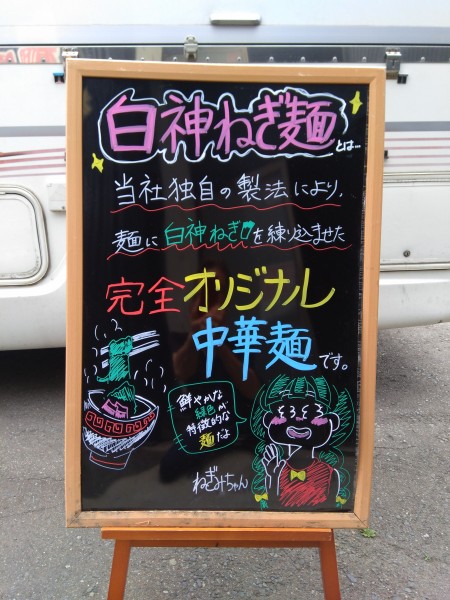 白神ねぎ麺
とは...
当社独自の製法により、
麺に白神ねぎを練り込ませた
完全オリジナル
中華麺です。
鮮やかな
緑色が
特徴的な
麺だよ
ねぎみちゃん